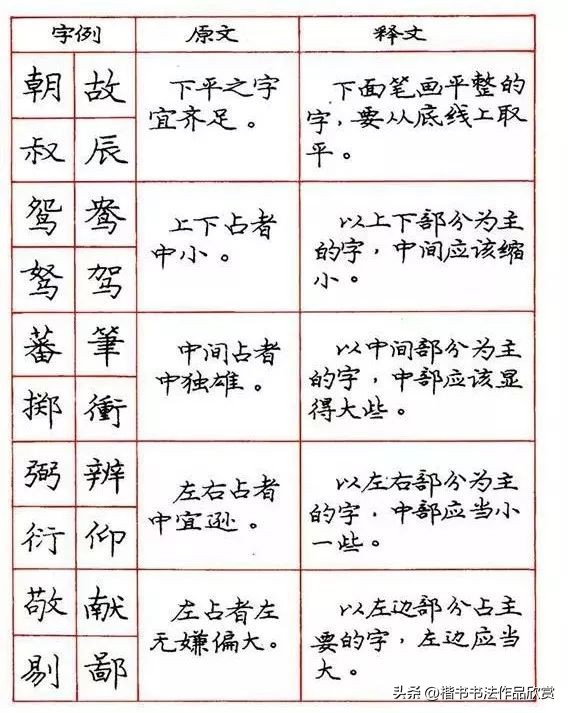 字例 原文 释文
朝 故
叔 辰
下平之字
宜齐足。
下面笔画平整的
字，要从底线上取
平。
鸳 鸯
驽 驾
上下占者
中小。
以上下部分为主
的字，中间应该缩
小。
蕃 筆
掷 衝
中间占者
中独雄。
以中间部分为主
的字，中部应该显
得大些。
弼 辨
衍 仰
左右占者
中宜逊。
以左右部分为主
的字，中部应当小
一些。
敬 献
剔 鄙
左占者左
无嫌偏大。
以左边部分占主
要的字，左边应当
大。
头条 @楷书书法作品欣赏